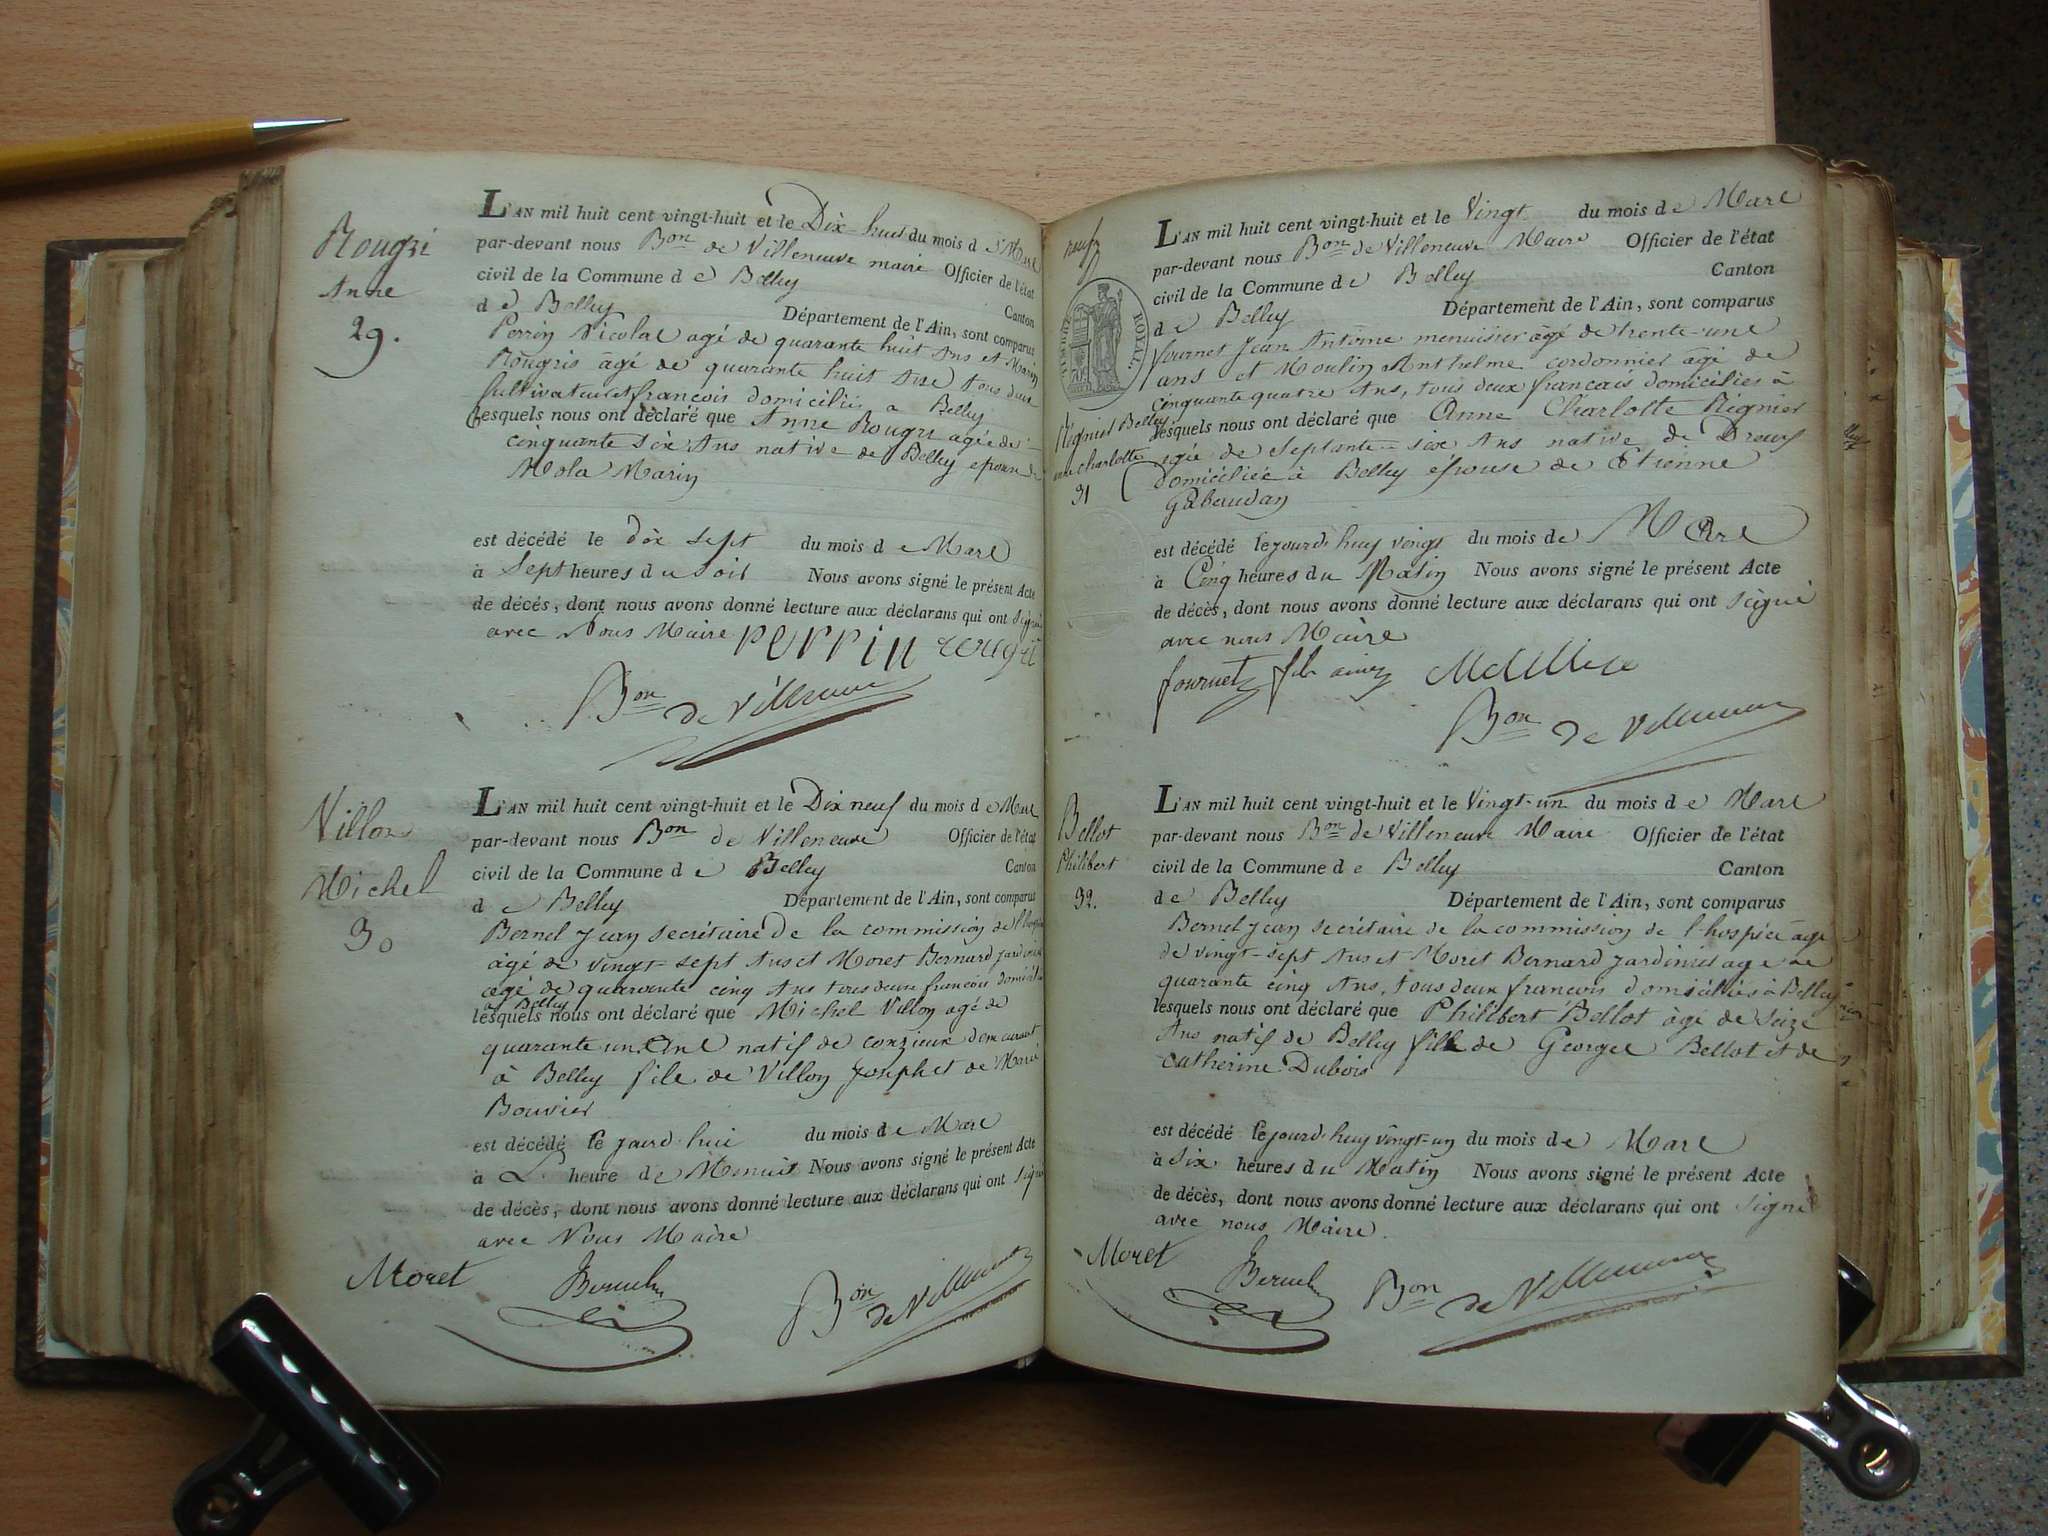 Rougri
Anne
29.
L'AN mil huit cent vingt-huit et le Dix-huit du mois d e Mars
par-devant nous Bon de Villeneuve maire Officier de l'état
civil de la Commune d e Belley Canton
d e Belley Département de l'Ain, sont comparus
Perrin Nicolas agé de quarante huit Ans et Marin
Rougris âgé de quarante huit Ans tous deux
Cultivateurs français domiciliés a Belley
lesquels nous ont déclaré que Anne Rougri agée de
cinquante six Ans native de Belley epouse de
Mola Marin
est décédé le dix sept du mois d e Mars
à Sept heures du soir Nous avons signé le présent Acte
de décés, dont nous avons donné lecture aux déclarans qui ont Signé
avec Nous Maire perrin rougri
Bon de Villeneuve
Villon
Michel
30
L'AN mil huit cent vingt-huit et le Dix neuf du mois d e Mars
par-devant nous Bon de Villeneuve Officier de l'état
civil de la Commune d e Belley Canton
d e Belley Département de l'Ain, sont comparus
Bernel Jean secrétaire de la commission de l'hospice
âgé de vingt-sept Ans et Moret Bernard jardinier
agé de quarante cinq Ans tous deux français domiciliés
a Belley
lesquels nous ont déclaré que Michel Villon agé de
quarante un Ans natif de conzieux demeurant
à Belley fils de Villon Joseph et de Marie
Bouvier
est décédé le jourd'hui du mois d e Mars
à L' heure de Menuit Nous avons signé le présent Acte
de décès, dont nous avons donné lecture aux déclarans qui ont signé
avec Nous Maire
Moret Bernel Bon de Villeneuve
neuf
ROYAL
Régnier Belley
anne charlotte
31
L'AN mil huit cent vingt-huit et le Vingt du mois d e Mars
par-devant nous Bon de Villeneuve Maire Officier de l'état
civil de la Commune d e Belley Canton
d e Belley Département de l'Ain, sont comparus
fournet Jean Antoine menuisier âgé de trente-une
ans et Moulin Anthelme cordonnier âgé de
cinquante quatre Ans, tous deux français domiciliés à
lesquels nous ont déclaré que Anne Charlotte Régnier
agée de Septante-six Ans native de Dreux
domiciliée à Belley épouse de Etienne
Gabaudan
est décédé le jourd'huy vingt du mois de Mars
à Cinq heures du Matin Nous avons signé le présent Acte
de décès, dont nous avons donné lecture aux déclarans qui ont signé
avec nous Maire
fournet fils ainé
Bon de Villeneuve
Bellot
Philibert
32.
L'AN mil huit cent vingt-huit et le Vingt-un du mois d e Mars
par-devant nous Bon de Villeneuve Maire Officier de l'état
civil de la Commune d e Belley Canton
d e Belley Département de l'Ain, sont comparus
Bernel Jean secrétaire de la commission de l'hospice âgé
de vingt-sept Ans et Moret Bernard jardinier agé de
quarante cinq Ans, tous deux français domiciliés à Belley
lesquels nous ont déclaré que Philibert Bellot âgé de seize
Ans natif de Belley fils de George Bellot et de
Catherine Dubois
est décédé le jourd'huy vingt-un du mois d e Mars
à Six heures du Matin Nous avons signé le présent Acte
de décès, dont nous avons donné lecture aux déclarans qui ont signé
avec nous Maire.
Moret Bernel Bon de Villeneuve